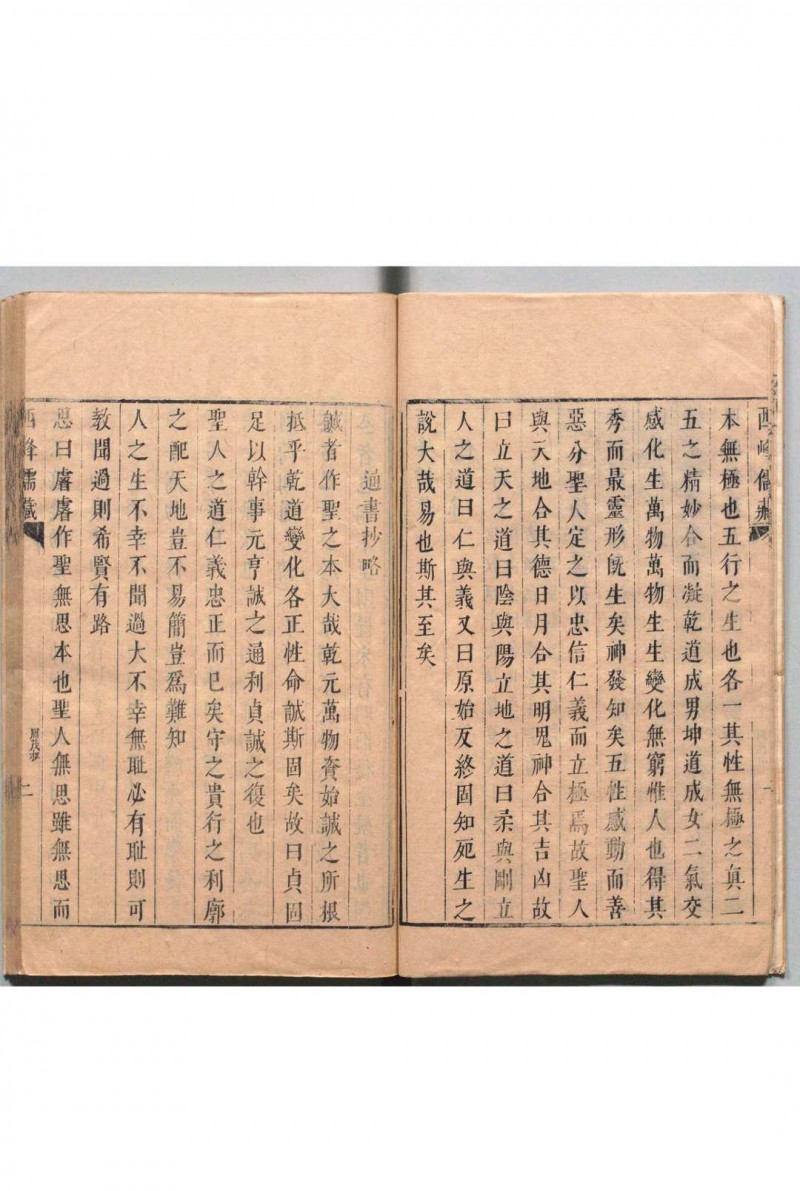 西峰儒藏
一
本無極也五行之生也各一其性無極之真二
五之精妙合而凝乾道成男坤道成女二氣交
感化生萬物萬物生生變化無窮惟人也得其
秀而最靈形既生矣神發知矣五性感動而善
惡分聖人定之以忠信仁義而立極焉故聖人
與天地合其德日月合其明鬼神合其吉凶故
曰立天之道曰陰與陽立地之道曰柔與剛立
人之道曰仁與義又曰原始反終固知死生之
說大哉易也斯其至矣
通書抄略
誠者作聖之本大哉乾元萬物資始誠之所根
抵乎乾道變化各正性命誠斯固矣故曰貞固
足以幹事元亨誠之通利貞誠之復也
聖人之道仁義忠正而已矣守之貴行之利廓
之配天地豈不易簡豈爲難知
人之生不幸不聞過大不幸無耻必有耻則可
教聞過則希賢有路
思曰睿睿作聖無思本也聖人無思雖無思而
西峰儒藏
周茂叔
二